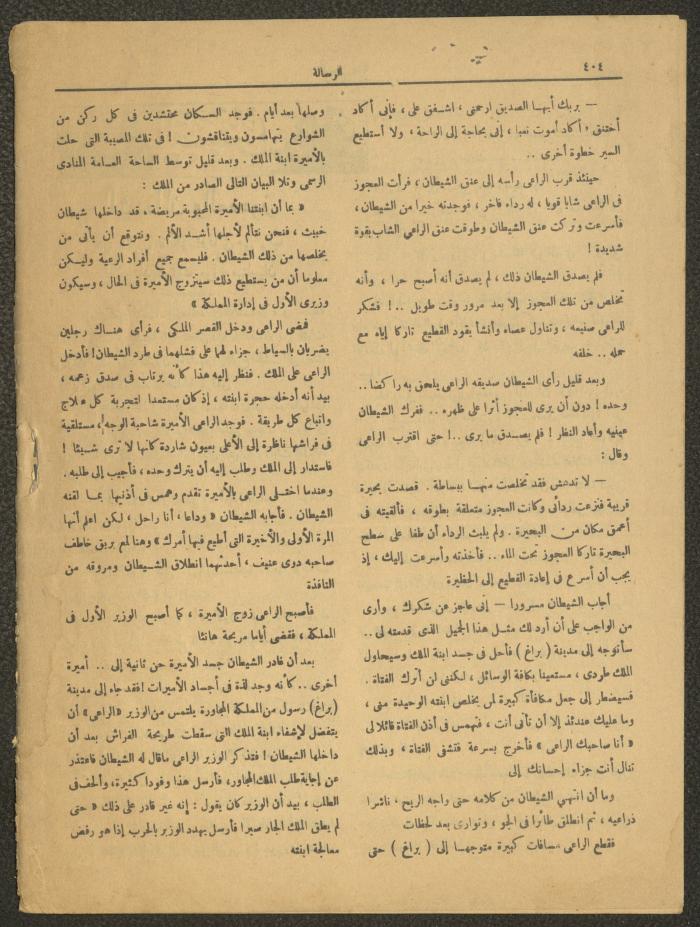 ٤٠٤
الرسالة
— بربك أيها الصديق ارحمنى ، اشفق على ، فإنى أكاد
أختنق ، أكاد أموت تعبا ، إنى بحاجة إلى الراحة ، ولا أستطيع
السير خطوة أخرى ..
حينئذ قرب الراعى رأسه إلى عنق الشيطان ، فرأت العجوز
فى الراعى شابا قويا ، له رداء فاخر ، فوجدته خيرا من الشيطان ،
فأسرعت وتركت عنق الشيطان وطوقت عنق الراعى الشاب بقوة
شديدة !
فلم يصدق الشيطان ذلك ، لم يصدق أنه أصبح حرا ، وأنه
تخلص من تلك العجوز إلا بعد مرور وقت طويل ..! فشكر
للراعى صنيعه ، وتناول عصاه وأنشأ يقود القطيع تاركا إياه مع
حمله .. خلفه
وبعد قليل رأى الشيطان صديقه الراعى يلحق به راكضا ..
وحده ! دون أن يرى للعجوز أثرا على ظهره .. ففرك الشيطان
عينيه وأعاد النظر ! فلم يصدق ما يرى ..! حتى اقترب الراعى
وقال :
— لا تدهش فقد تخلصت منها ببساطة . قصدت بحيرة
قريبة فنزعت ردائى وكانت العجوز متعلقة بطوقه ، فألقيته فى
أعمق مكان من البحيرة . ولم يلبث الرداء أن طفا على سطح
البحيرة تاركا العجوز تحت الماء .. فأخذته وأسرعت إليك ، إذ
يجب أن أسرع فى إعادة القطيع إلى الحظيرة
أجاب الشيطان مسرورا — إنى عاجز عن شكرك ، وأرى
من الواجب على أن أرد لك مثل هذا الجميل الذى قدمته لى ..
سأتوجه إلى مدينة ( براغ ) فأحل فى جسد ابنة الملك وسيحاول
الملك طردى ، مستعينا بكافة الوسائل ، لكننى لن أترك الفتاة .
فسيضطر إلى جعل مكافأة كبيرة لمن يخلص ابنته الوحيدة منى ،
وما عليك عندئذ إلا أن تأتى أنت ، فتهمس فى أذن الفتاة قائلا لى
« أنا صاحبك الراعى » فأخرج بسرعة فتشفى الفتاة ، وبذلك
تنال أنت جزاء إحسانك إلى
وما أن انتهى الشيطان من كلامه حتى واجه الريح ، ناشرا
ذراعيه ، ثم انطلق طائرا فى الجو ، وتوارى بعد لحظات
فقطع الراعى مسافات كبيرة متوجها إلى ( براغ ) حتى
وصلها بعد أيام . فوجد السكان محتشدين فى كل ركن من
الشوارع يتهامسون ويتناقشون ! فى تلك المصيبة التى حلت
بالأميرة ابنة الملك . وبعد قليل توسط الساحة العامة المنادى
الرسمى وتلا البيان التالى الصادر من الملك :
« بما أن ابنتنا الأميرة المحبوبة مريضة ، قد داخلها شيطان
خبيث ، فنحن نتألم لأجلها أشد الألم . ونتوقع أن يأتى من
يخلصها من ذلك الشيطان . فليسمع جميع أفراد الرعية وليكن
معلوما أن من يستطيع ذلك سيتزوج الأميرة فى الحال ، وسيكون
وزيرى الأول فى إدارة المملكة »
فمضى الراعى ودخل القصر الملكى ، فرأى هناك رجلين
يضربان بالسياط ، جزاء لهما على فشلهما فى طرد الشيطان ! فأدخل
الراعى على الملك . فنظر إليه هذا كأنه يرتاب فى صدق زعمه ،
بيد أنه أدخله حجرة ابنته ، إذ كان مستعدا لتجربة كل علاج
واتباع كل طريقة . فوجد الراعى الأميرة شاحبة الوجه ، مستلقية
فى فراشها ناظرة إلى الأعلى بعيون شاردة كأنها لا ترى شيئا !
فاستدار إلى الملك وطلب إليه أن يترك وحده ، فأجيب إلى طلبه .
وعندما اختلى الراعى بالأميرة تقدم وهمس فى أذنيها بما لقنه
الشيطان . فأجابه الشيطان « وداعا ، أنا راحل ، لكن اعلم أنها
المرة الأولى والأخيرة التى أطيع فيها أمرك » وهنا لمع بريق خاطف
صاحبه دوى عنيف ، أحدثهما انطلاق الشيطان ومروقه من
النافذة
فأصبح الراعى زوج الأميرة ، كما أصبح الوزير الأول فى
المملكة ، فقضى أياما مريحة هانئا
بعد أن غادر الشيطان جسد الأميرة حن ثانية إلى .. أميرة
أخرى .. كأنه وجد لذة فى أجساد الأميرات ! فقد جاء إلى مدينة
(براغ) رسول من المملكة المجاورة يلتمس من الوزير «الراعى» أن
يتفضل لإشفاء ابنة الملك التى سقطت طريحة الفراش بعد أن
داخلها الشيطان ! فتذكر الوزير الراعى ماقال له الشيطان فاعتذر
عن إجابة طلب الملك المجاور، فأرسل هذا وفودا كثيرة، وألحف فى
الطلب ، بيد أن الوزير كان يقول : إنه غير قادر على ذلك « حتى
لم يطق الملك الجار صبرا فأرسل يهدد الوزير بالحرب إذا هو رفض
معالجة ابنته